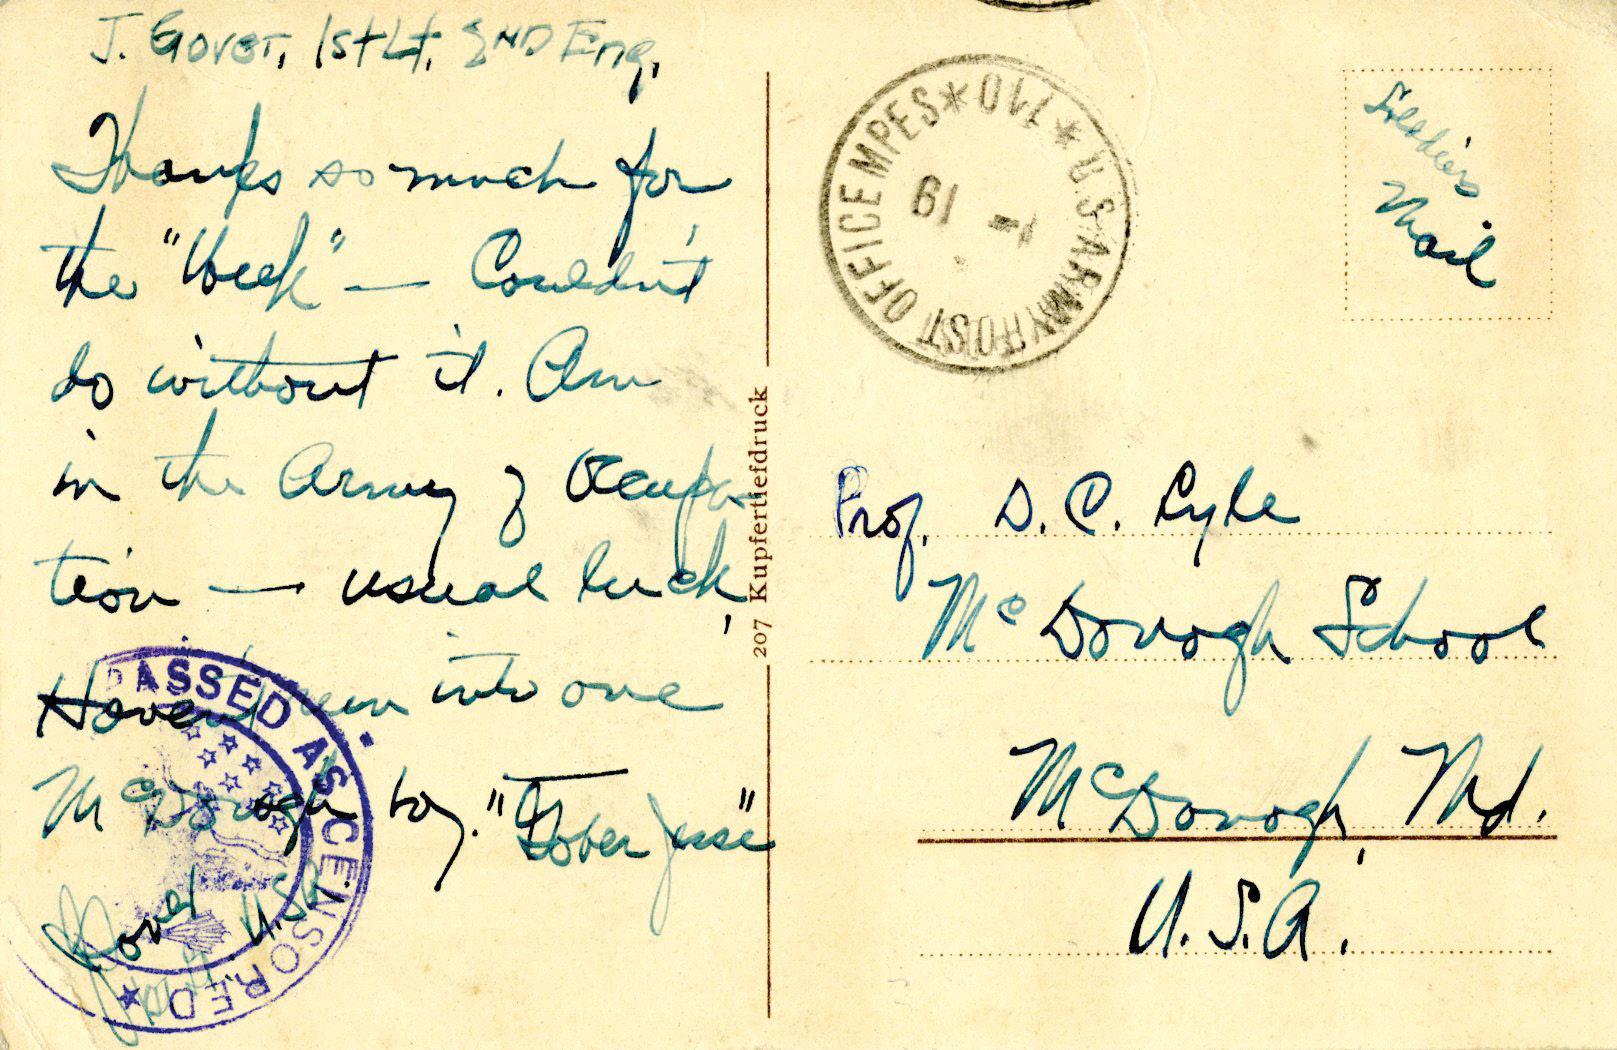 J. Gover, 1st Lt. 2ND Eng.
Thanks so much for
the "Week" — Couldn't
do without it. Am
in the Army of Occupa
tion — usual luck,
Haven't run into one
McDonogh boy. "Gober Jesse"
Gover
U.S.A
PASSED AS CENSORED
207 Kupfertiefdruck
U.S. ARMY POST OFFICE MPES * 710 *
1 - 19
Soldier's
Mail
Prof. D. C. Lyle
McDonogh School
McDonogh, Md.
U.S.A.